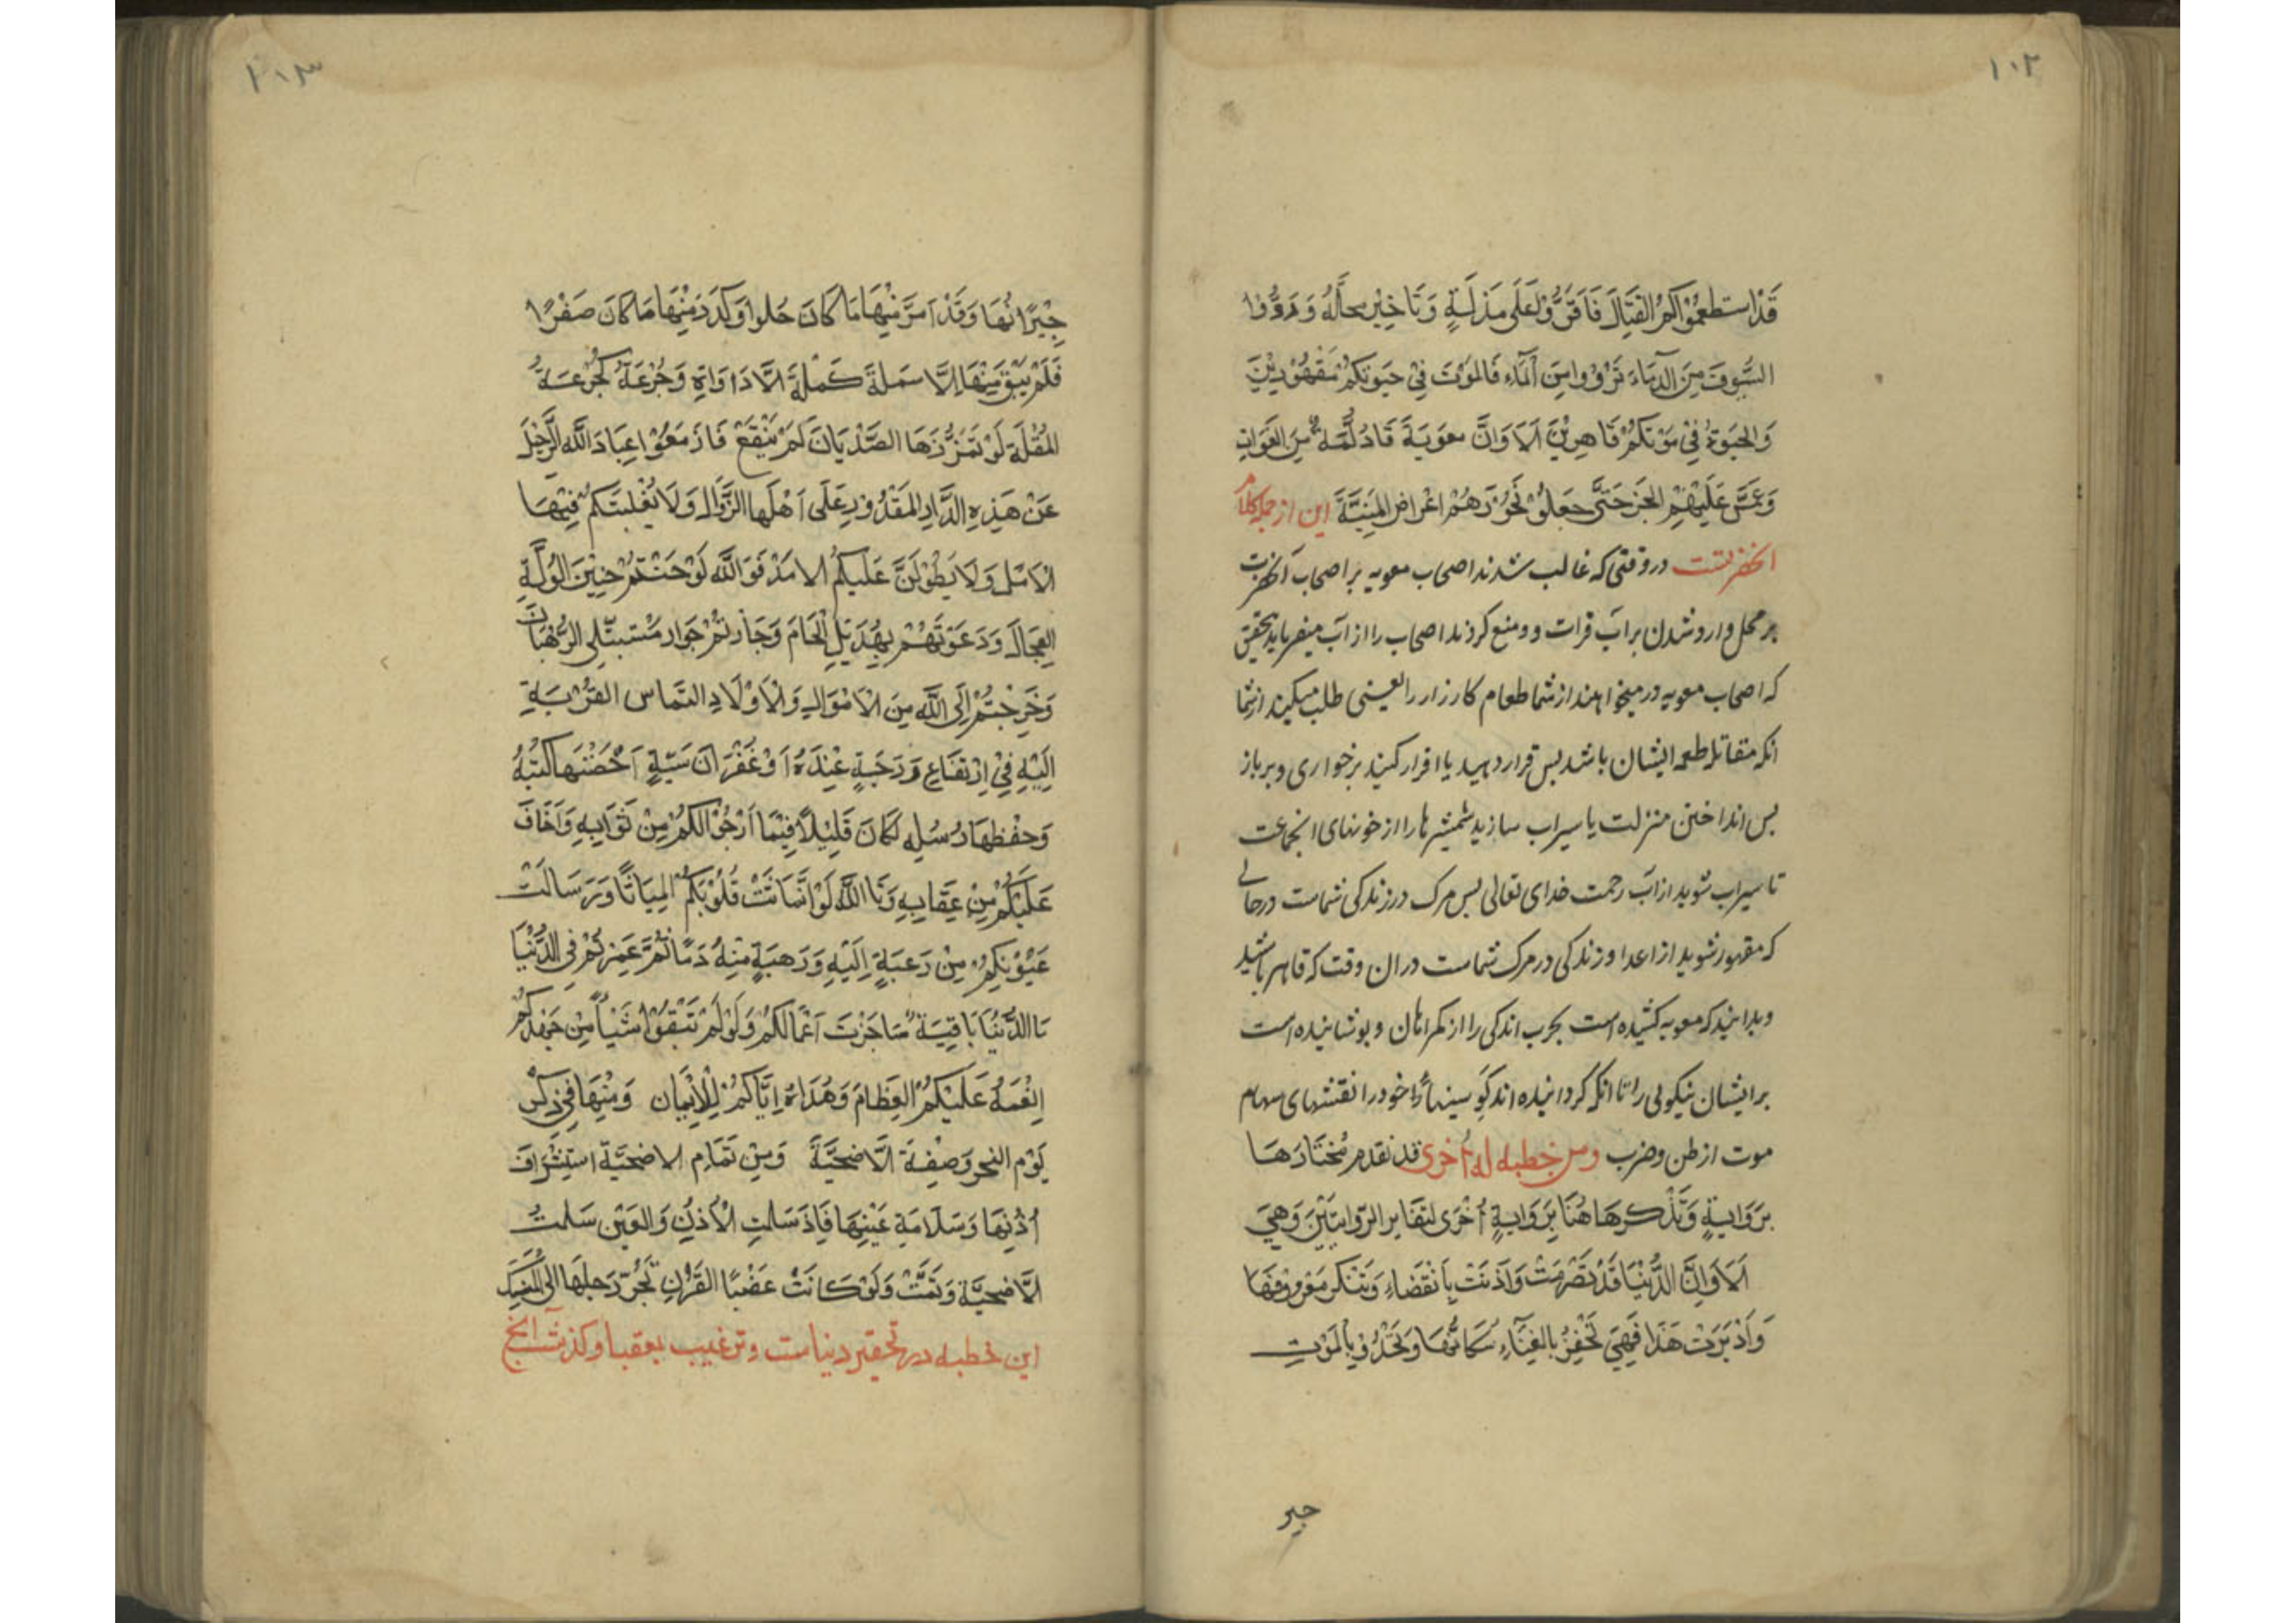 ١٠٢
قَدْ استطعموُكُمُ القِتَالَ فَاَقَرُّوْا عَلَى مَذَلَّةٍ وَتَاخِيْرِ محلَّهُ وَ رَوُّوا
السُّيوفَ مِنَ الدِّمَاءِ تَرْوَوْا مِنَ اَلْمَآءِ فَالمَوْتَ فِيْ حَيوتِكُمْ مَقْهُوْرِيْنَ
وَالحَيَوةُ فِيْ مَوْتِكُمْ قَاهِرِيْنَ اَلَا وَاِنَّ معَوِيَةَ قَادَ لُمَّةً مِنَ الغُوَاةِ
وَعَمَّسَ عَلَيْهِمِ الخبَرَ حَتَّى جعَلوُا نُحُوْرَهُمْ اغْراضَ المَنِيَّةَ این از جمله کلام
انحضرتست در وقتی که غالب شدند اصحاب معویه بر اصحاب آنحضرت
بر محل وارد شدن بر آب فرات و ومنع کردند اصحاب را از آب میفرماید بتحقیق
که اصحاب معویه در میخواهند از شما طعام کارزار را یعنی طلب میکنید از شما
انکه مقاتله طعمه ایشان باشد بس قرار دهید یا اقرار کنید بر خواری و بر باز
بس انداختن منزلت یا سیراب سازید شمشیرها را از خونهای انجماعت
تا سیراب شوید از آب رحمت خدای تعالی بس مرک در زندکی شماست درحالی
که مقهور شوید از اعدا و زندکی در مرک شماست در ان وقت که قاهر باشید
وبدانید که معویه کشیده است بحرب اندکی را از کمراهان و بوشانیده است
بر ایشان نیکویی را تا انکه کردانیده اند کو سینهآء خود را نقشهای سهام
موت از طن وضرب ومن خطبه له اُخری قد تقدم مُختَارُهَا
بِرَوَايةٍ وَنَذْكرهَا هُنَا بِرَوَايةٍ اُخْرَى لتغَاير الرّوايتَيْنَ وَهِيَ
اَلَا وَاِنَّ الدُّنْيَا قَدْ تصَرَّمَتْ وَآذنَتْ بِانْقضَاءِ وَتَنَكَّرَ مَعْروفهَا
وَاَدْبَرَتْ حَذَا فَهِيَ تَحْفِزُ بالفَنَآءِ سُكَّانُهَا وَتَحْدُوْ بِالمَوْتِ
جیر
١٠٣
جِيْرَانُهَا وَقَدْ اَمرَّ مِنْهَا مَا كَانَ حُلوا وَكَدَرَ مِنْهَا مَا كَانَ صَفْرًا
فَلَمْ يَبْقَ مِنْهَا اِلَّا سَملةَ كَسَمْلَةِ الَّادَاوَاةِ وَجُرْعَةُ كَجُرْعَةُ
المُقْلَةَ لَوْ تَمَزَّزَهَا الصَّدْيَانَ لَمْ يَنْقَعْ فَازْمَعُوْا عِبَادَ اللّٰهِ الرَّحْيلَ
عَنْ هَذِهِ الدَّارِ المَقْدُوْرِ عَلَى اَهْلهَا الزَّوَالِ وَلَا يَغْلبَنّكُمْ فِيْهَا
الاَمَلُ وَلَا يَطُوْلَنَّ عَلَيكُم الامَدْ فَوَاللّٰهِ لَوْ حَنَنْتُمْ حَنِيْنَ الوُلَّةِ
العِجَالَ وَدَعَوْتَهُمْ بِهَدِيْلِ الْحَامَ وَجَارتُمْ جوار مُتبتّلى الرُّهْبَانَ
وَخَرَجْتُمْ اِلَى اللّٰهِ مِنَ الاَمْوَالِ وَالْاَوْلَادِ التمَاس القُرْبَةِ
اِلَيْهِ فِيْ اِرْتفَاعِ دَرَجَةٍ عِنْدَهُ اَوْ غُفْرَانَ سَيّئةٍ اَحْصَتْهَا كتبُهُ
وَحفْظهَا رُسُلِهِ لَكَانَ قَلِيْلًا فِيْمَا اَرْجُوْ الكُمُ مِنْ ثَوَابِهِ وَاَخَافَ
عَلَيكُمْ مِنْ عِقَابِهِ وَتَا اللّٰهِ لَوْ انْمَاثَتْ قُلُوْبُكُمْ اِنْميَاثًا وَرَسَالَتْ
عيُوْنكُمْ مِنْ رَغبَةٍ اِلَيْهِ وَرَهبَةٍ مِنْهُ دَمًا ثُمَّ عَمرْتُمْ فِي الدُّنْيَا
مَا الدُّنْيَا بَاقِيَة مَا جَزَتَ اَعْمَالكُمُ وَلَوْ لَمْ تَبْقَوْا شَيْأً مِنْ جَهْدِكُمْ
اَنْعُمَهُ عَلَيْكُمُ العِظَامَ وَهُدَاهُ اِيَّاكُمْ لِلْاِيْمَان وَمِنْهَا فِيْ ذِكْر
يَوْم النحر وَصِفَةَ الَّاضحيَّةَ وَمِنْ تَمَام الاضحيَّة استِشْرَافَ
اُذُنِهَا وَسَلَامَةِ عَيْنِهَا فَاِذَ سَلتِ الْاُذُنَ وَالعَيْن سَلمتُ
الَّاضحيَّة وَتَمَّتْ وَلَوْ كَانَتْ عَضْبًا القَرْنِ تَجُرُّ رَجلهَا الى المَنْسِكَ
این خطبه در تحقیر دنیاست و ترغیب بعقبا و کذشت انخ